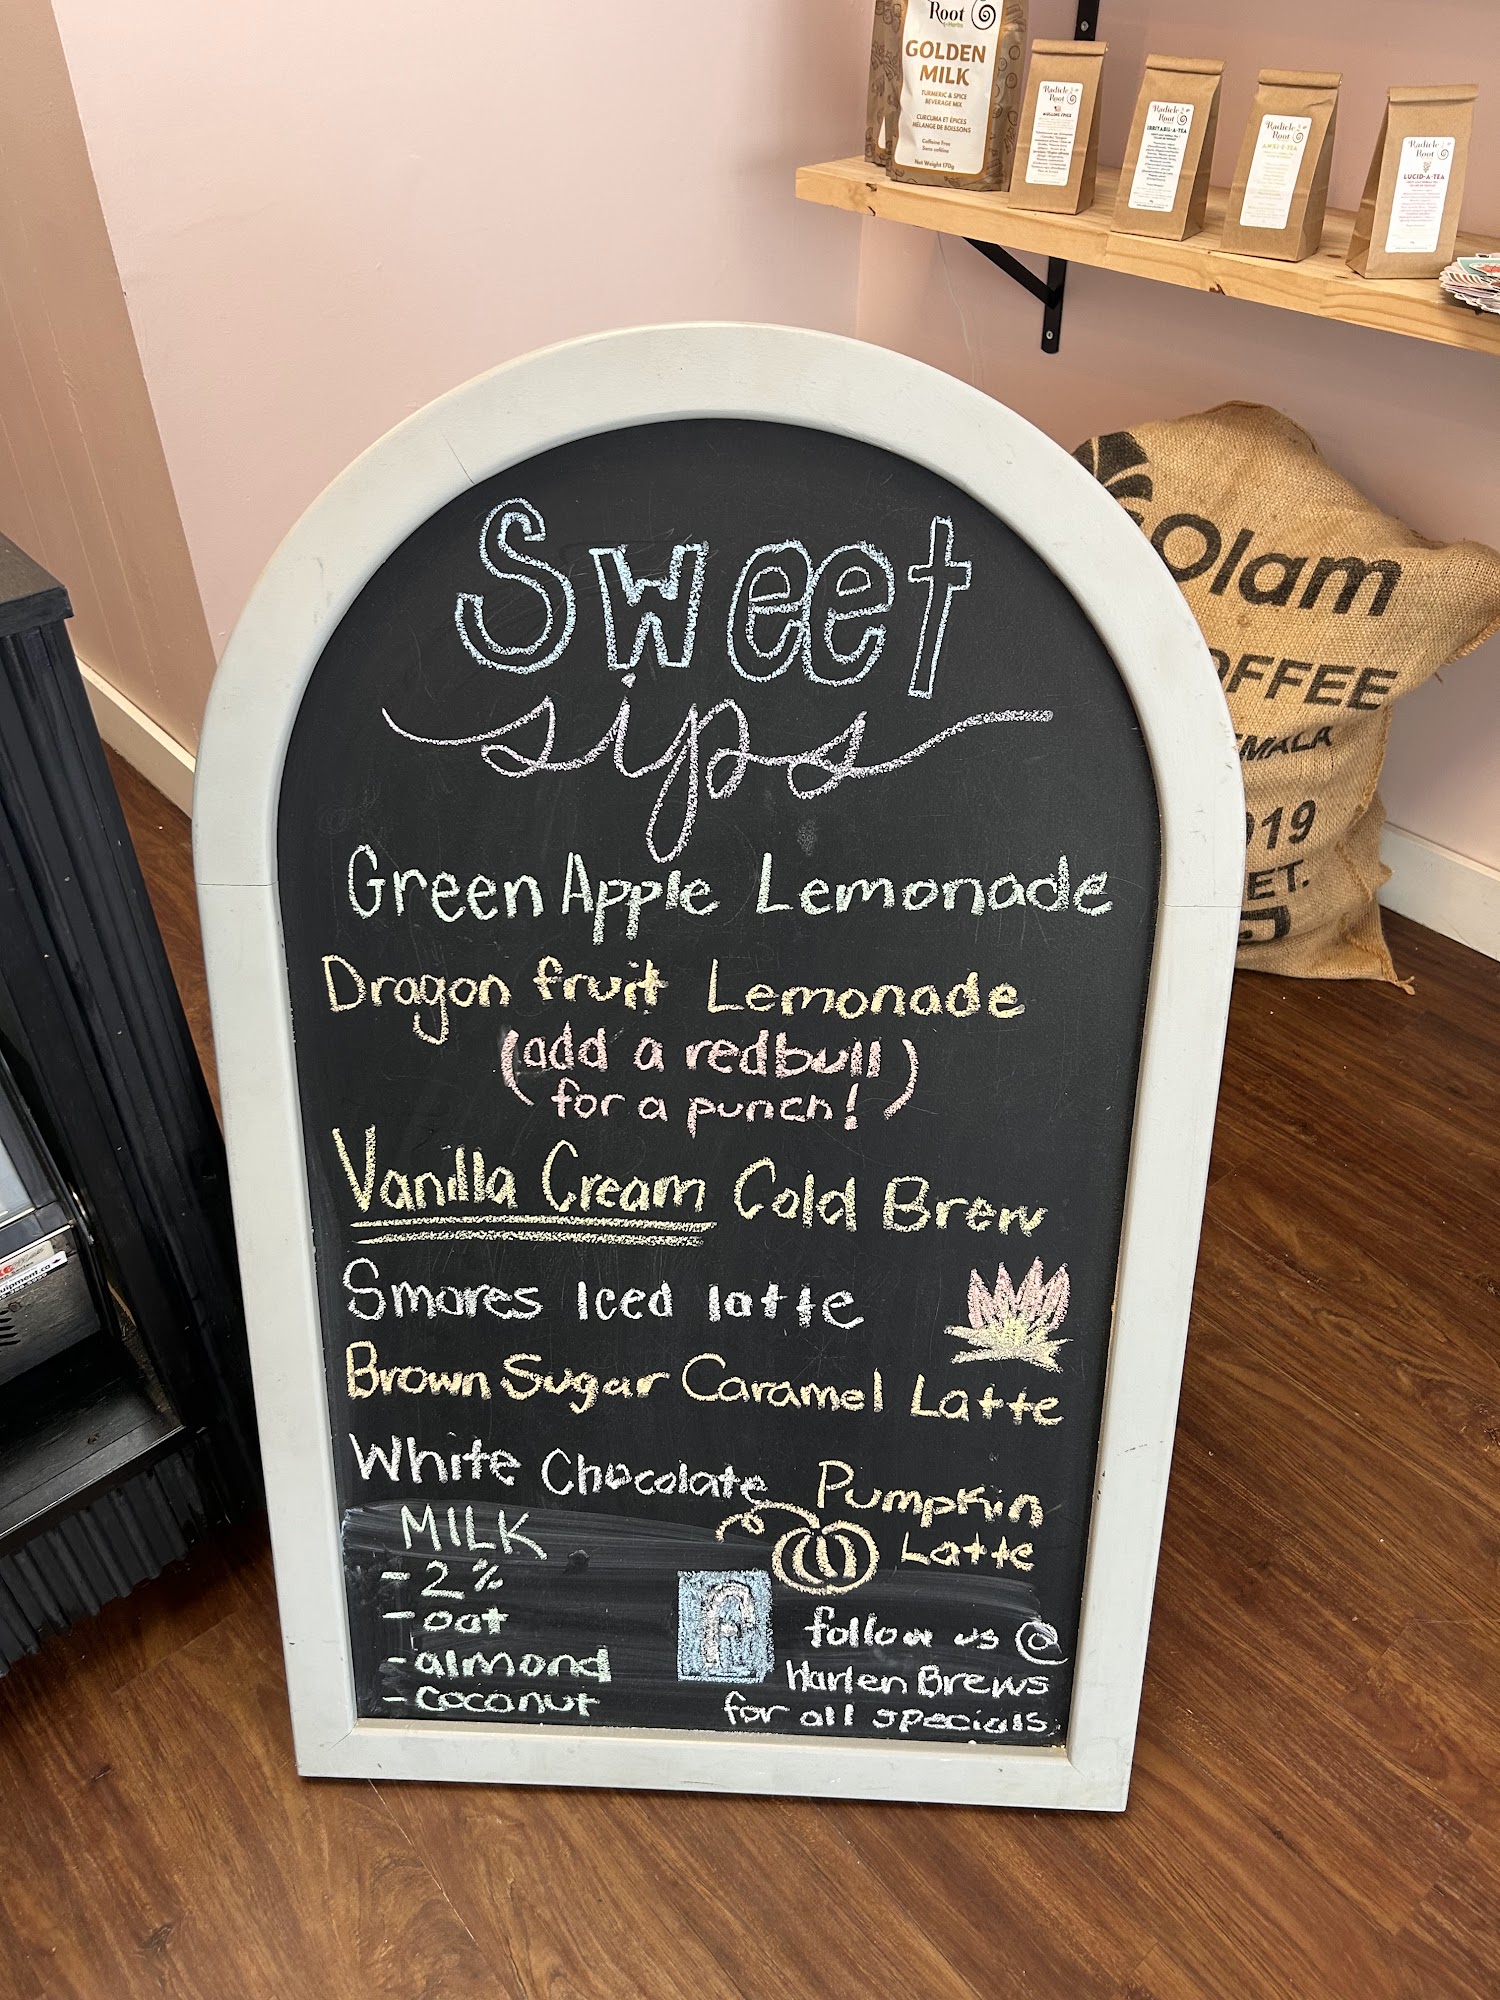 Root
+Herbs
GOLDEN
MILK
TURMERIC & SPICE
BEVERAGE MIX
CURCUMA ET ÉPICES
MÉLANGE DE BOISSONS
Caffeine Free
Sans caféine
Net Weight 170g
Radicle
Root
MULLING SPICE
Radicle
Root
IRRITABIL-A-TEA
Radicle
Root
ANXI-E-TEA
Radicle
Root
LUCID-A-TEA
Olam
OFFEE
EMALA
019
ET.
Sweet
sips
Green Apple Lemonade
Dragon fruit Lemonade
(add a redbull)
for a punch!
Vanilla Cream Cold Brew
Smores Iced latte
Brown Sugar Caramel Latte
White Chocolate Pumpkin
Latte
MILK
- 2%
- oat
- almond
- coconut
f
follow us @
Harlen Brews
for all specials.
uipment.ca